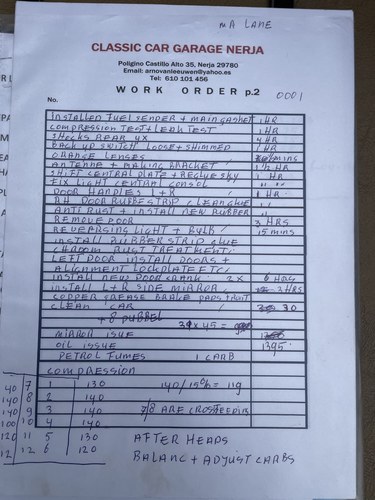 MR LANE
CLASSIC CAR GARAGE NERJA
Poligino Castillo Alto 35, Nerja 29780
Email: arnovanleeuwen@yahoo.es
Tel: 610 101 456
WORK ORDER p.2
No. 0001
INSTALLED FUEL SENDER + MAIN GASKET 1 HR
COMPRESSION TEST + LEAK TEST 1 HR
SHOCKS REAR 4X 4 HR
BACK UP SWITCH LOOSE + SHIMMED 1 HR
ORANGE LENSES MINS
ANTENNE + MAKING BRACKET 1½ HR
SHIFT CENTRAL PLATE + REGLUE SKY 1 HR
FIX LIGHT CENTRAL CONSOL " "
DOOR HANDLES L+R 1 HR
RH DOOR RUBBER STRIP / CLEAN GLUE "
ANTI RUST + INSTALL NEW RUBBER "
REMOVE DOOR 3 HRS
REVERSING LIGHT + BULB / 15 MINS
INSTALL RUBBER STRIP GLUE
CHROOM RUST TREATMENT
LEFT DOOR INSTALL DOORS +
ALIGNMENT LOCKPLATE ETC /
INSTALL NEW DOOR CRANK 2X 6 HRS
INSTALL L+R SIDE MIRROR / 2 HRS
COPPER GREASE BRAKE PADS +
CLEAN CAR / 30
+ 8
39 x 45 =
MIRROR ISUE
OIL ISSUE 1395
PETROL FUMES 1 CARB
COMPRESSION
40 7 1 130 140/15% = 119
140 8 2 140
140 9 3 140 7/8 ARE
100 10 4 140
120 11 5 130 AFTER HEADS
12 12 6 120 BALANC + ADJUST CARBS